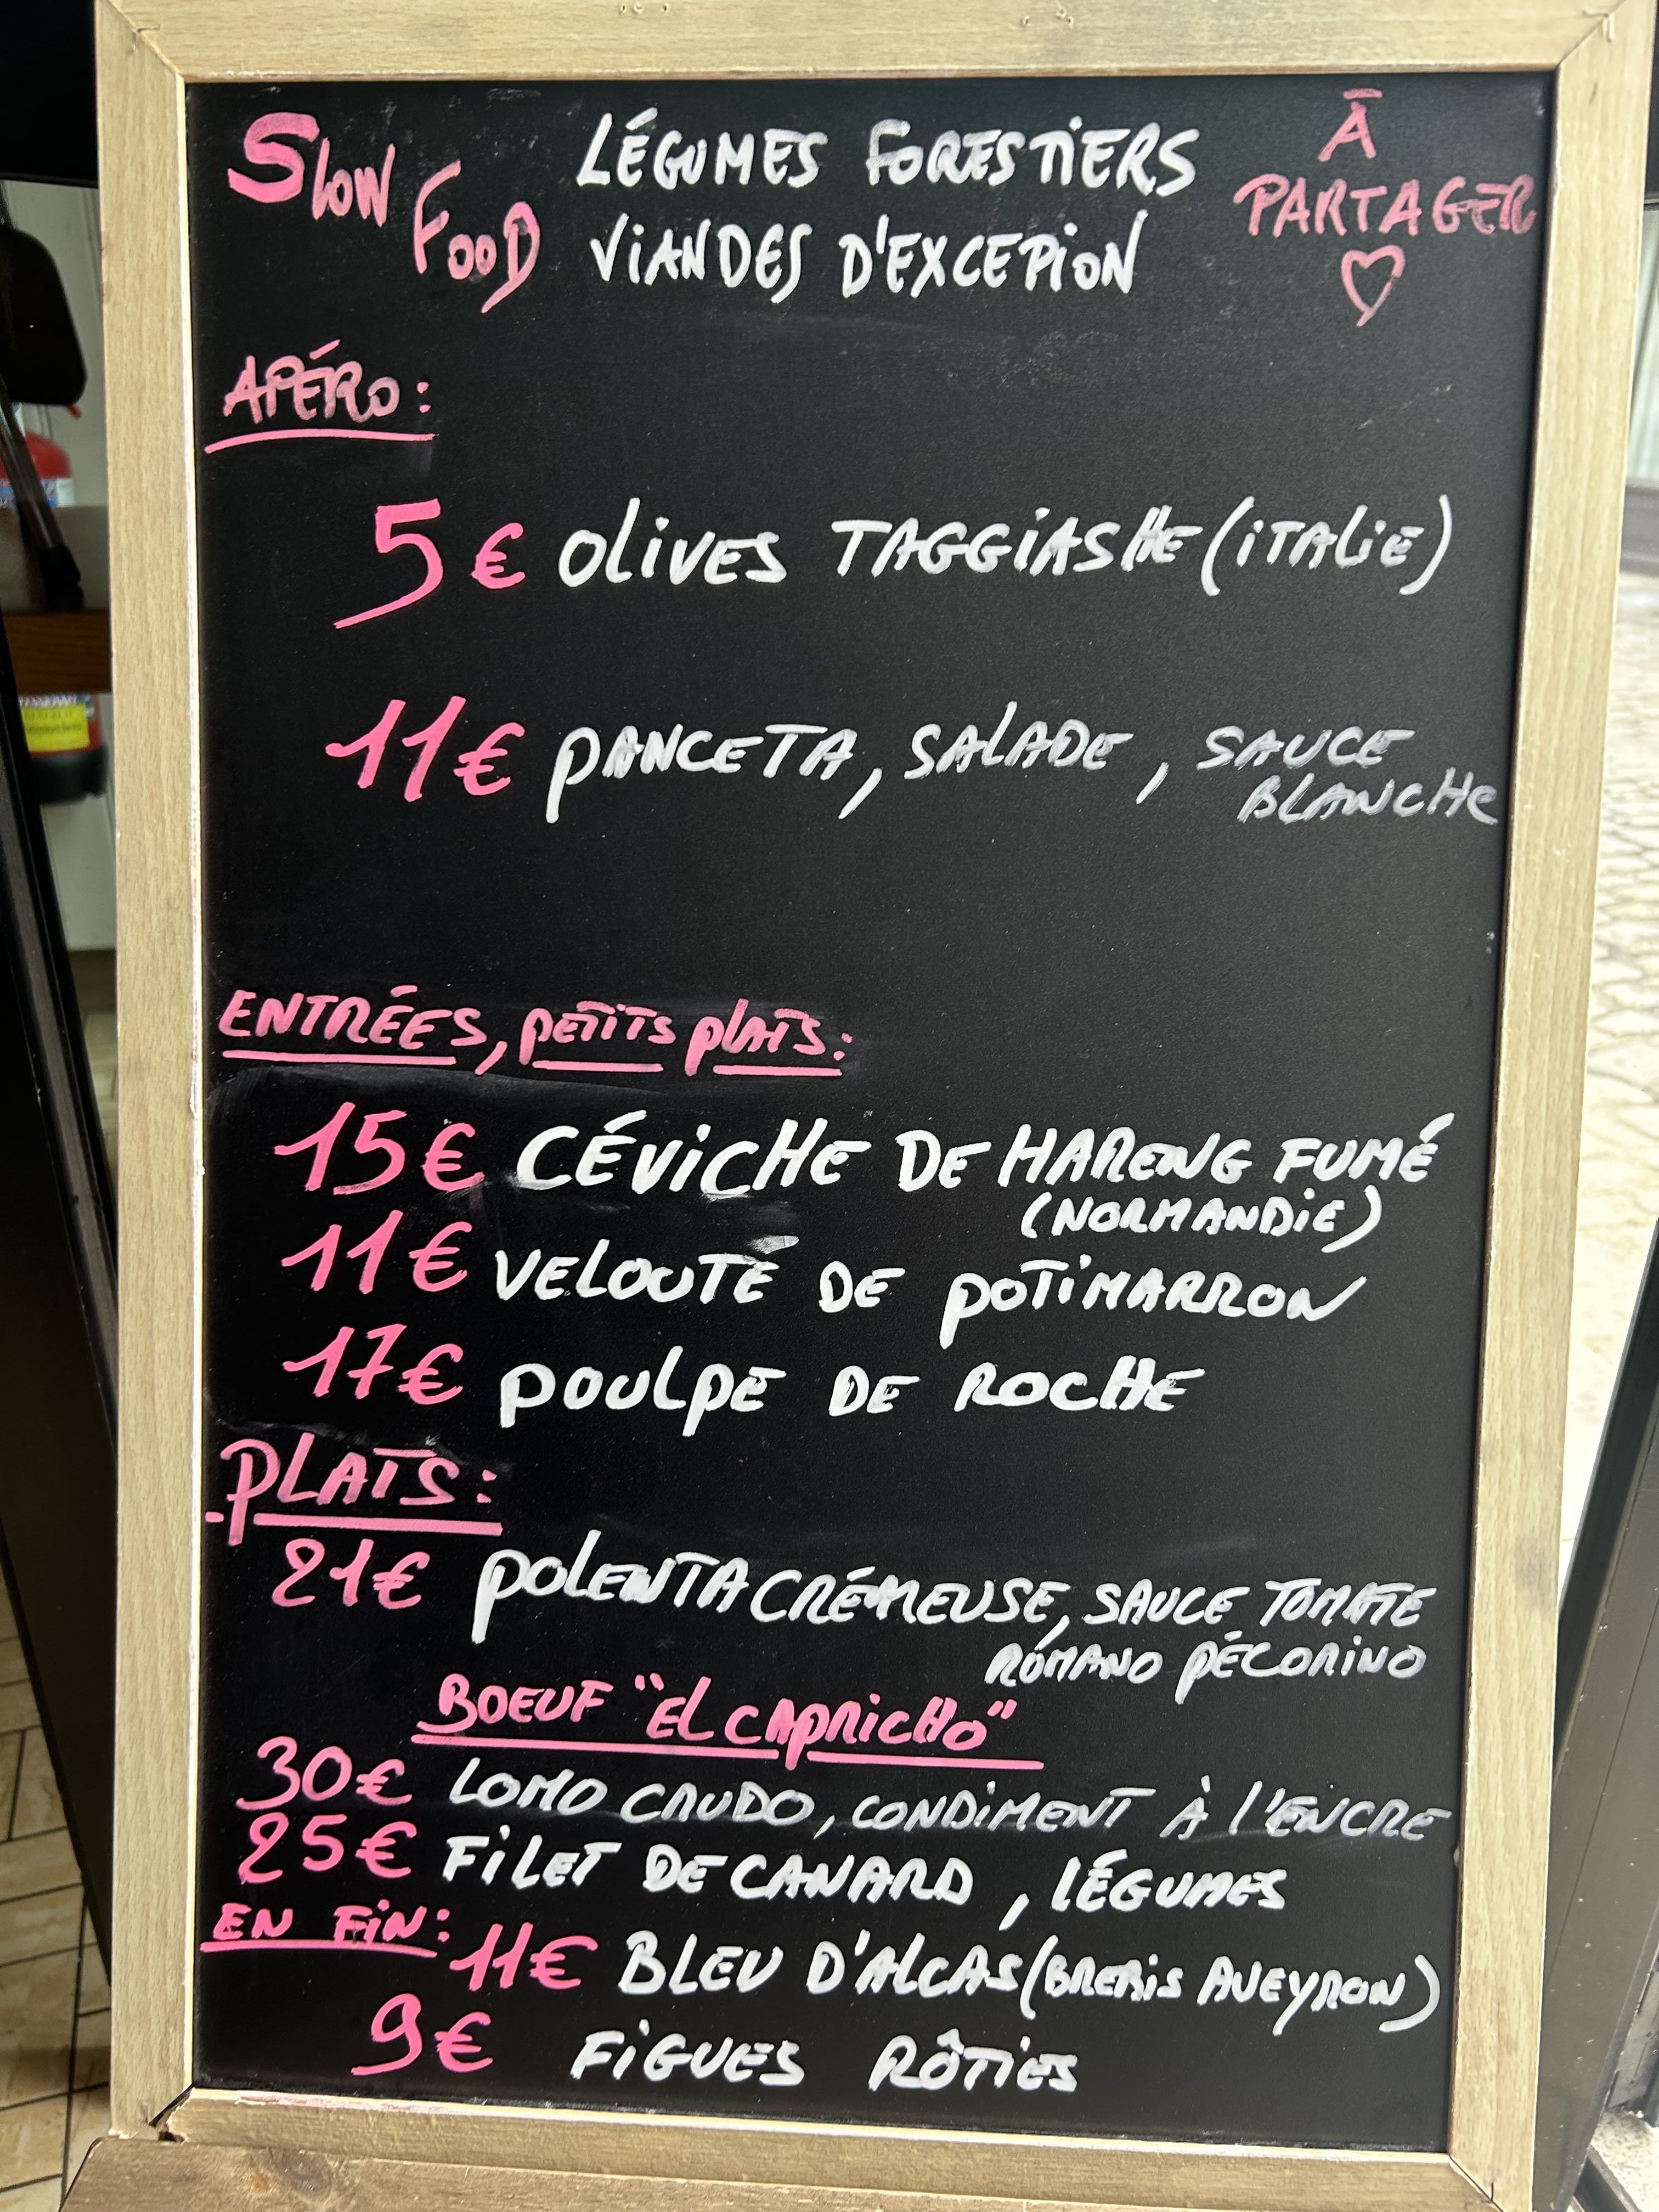 SLOW FOOD LÉGUMES FORESTIERS À PARTAGER ♡
VIANDES D'EXCEPION
APÉRO:
5€ OLIVES TAGGIASHE (ITALIE)
11€ PANCETA, SALADE, SAUCE
BLANCHE
ENTRÉES, PETITS PLATS:
15€ CÉVICHE DE HARENG FUMÉ
(NORMANDIE)
11€ VELOUTÉ DE POTIMARRON
17€ POULPE DE ROCHE
PLATS:
21€ POLENTA CRÉMEUSE, SAUCE TOMATE
ROMANO PÉCORINO
BOEUF "EL CAPRICHO"
30€ LOMO CRUDO, CONDIMENT À L'ENCRE
25€ FILET DE CANARD, LÉGUMES
EN FIN: 11€ BLEU D'ALCAS (BREBIS AVEYRON)
9€ FIGUES RÔTIES